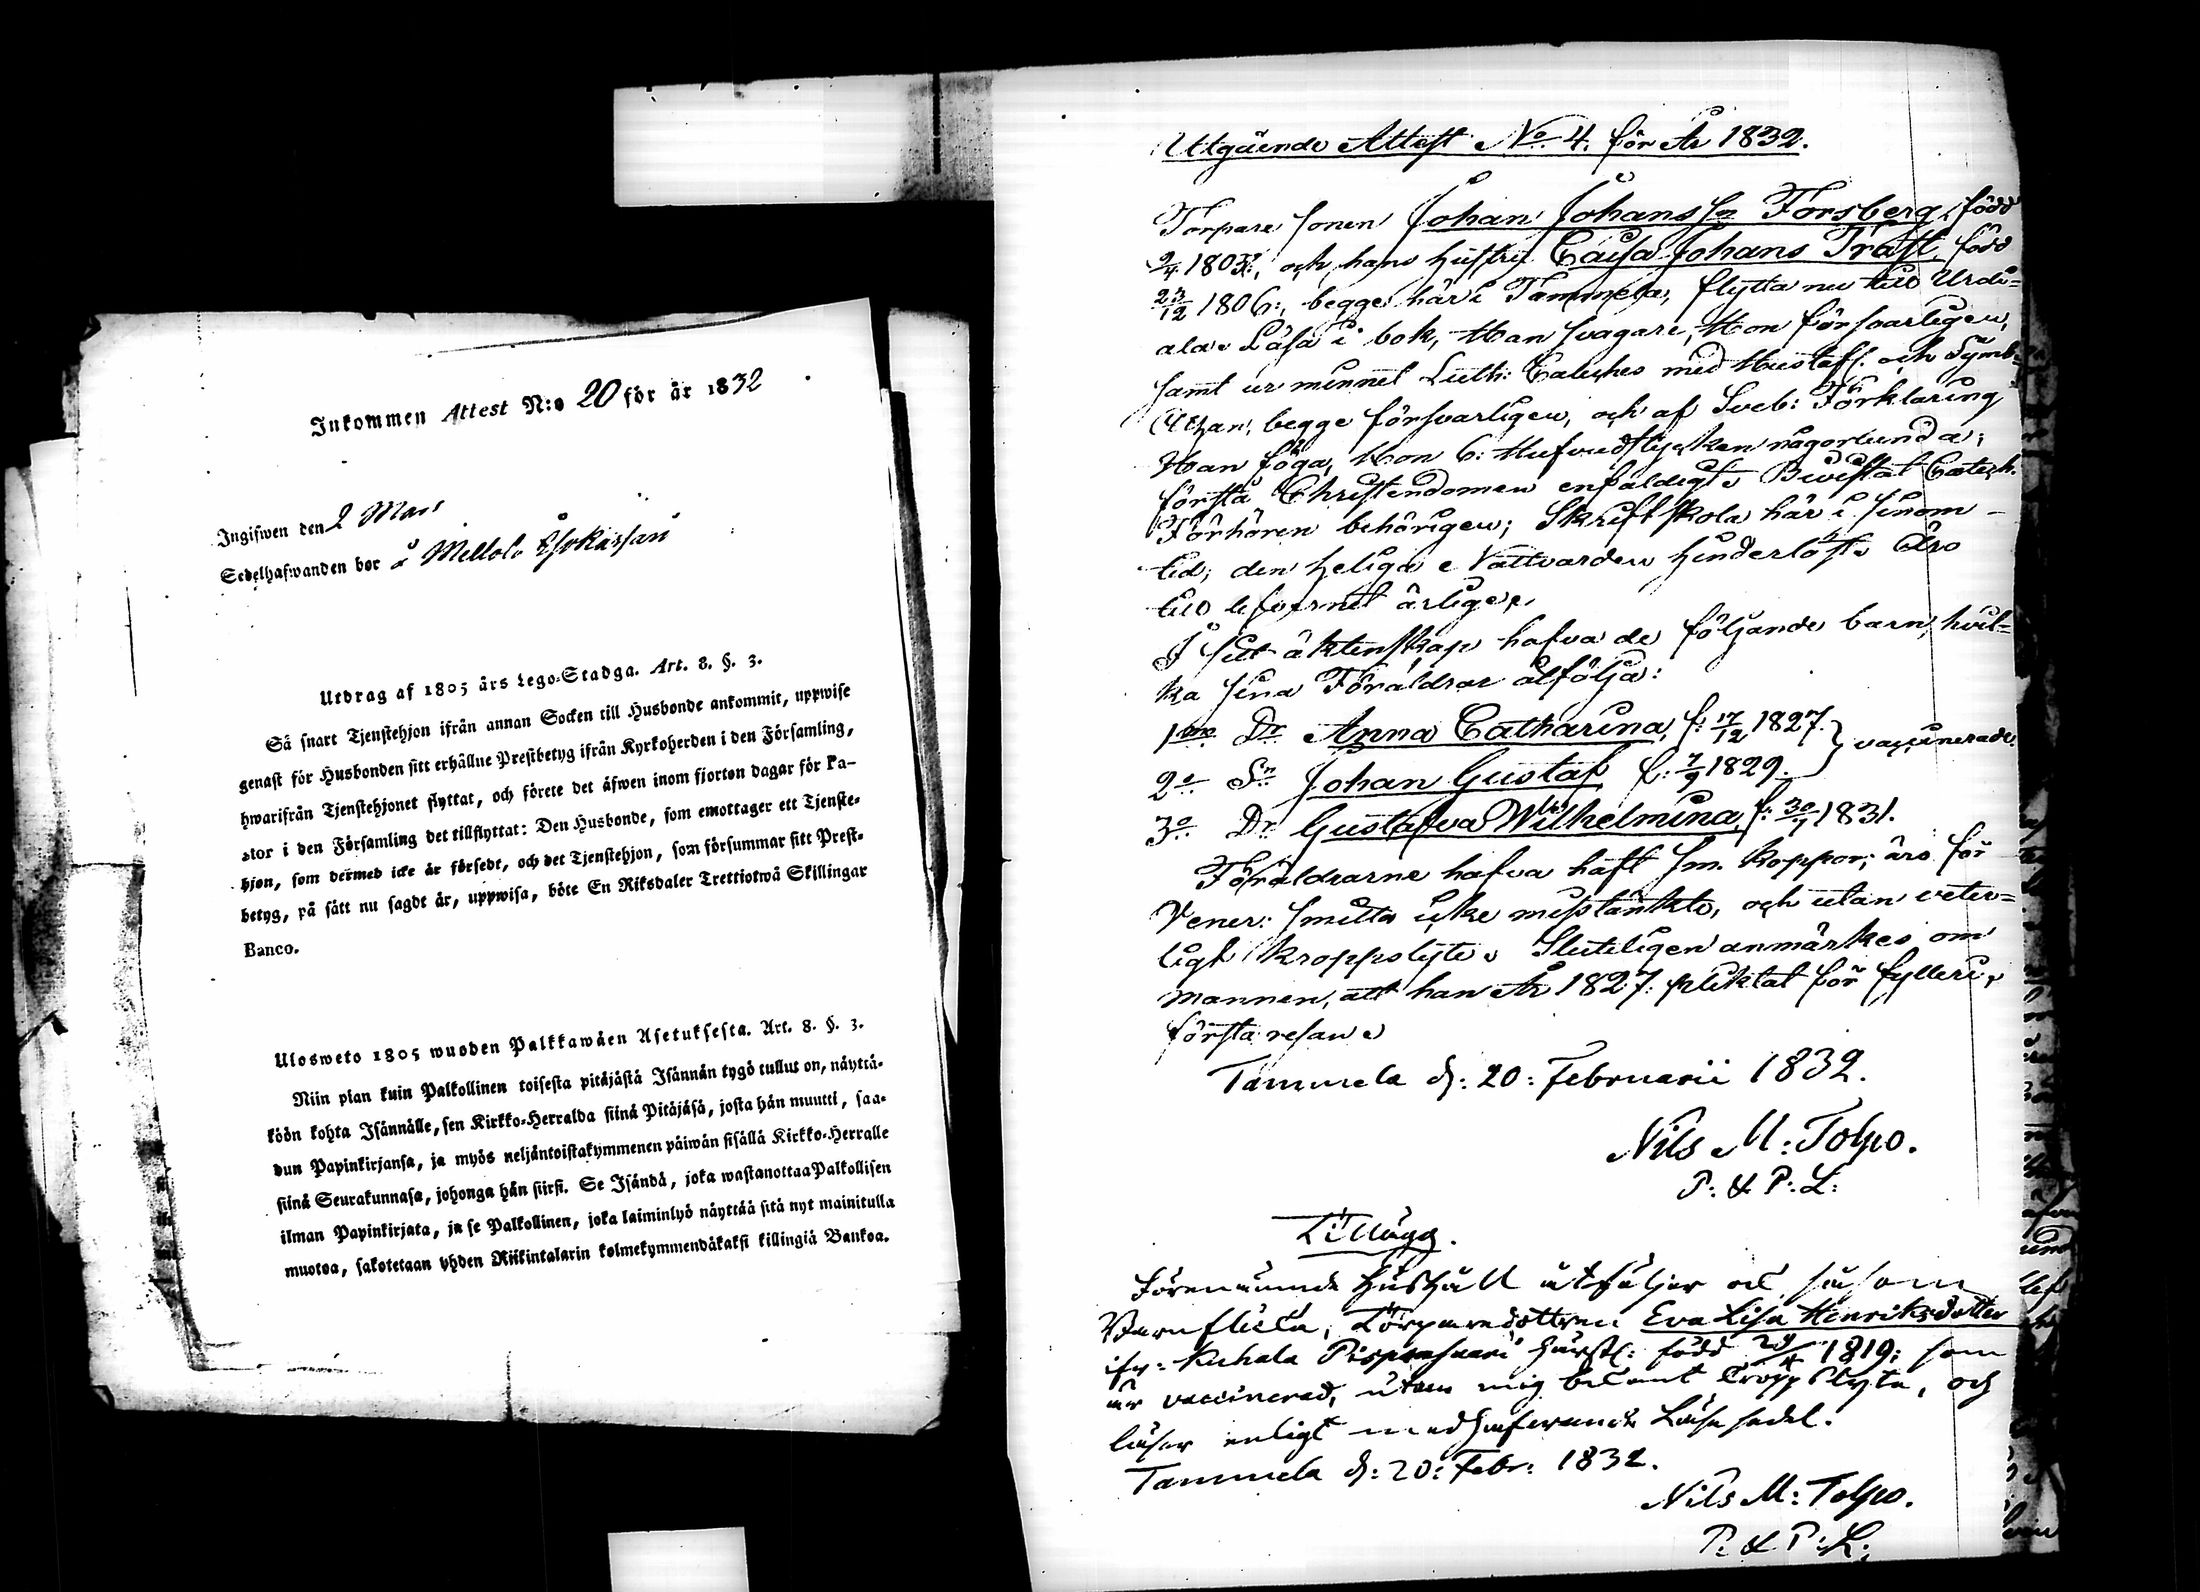 Inkommen Attest N:o 20 för år 1832
Ingifwen den 2 Mars
Sedelhafwanden bor å Mellola
Utdrag af 1805 års Lego-Stadga. Art. 8. §. 3.
Så snart Tjenstehjon ifrån annan Socken till Husbonde ankommit, uppwise
genast för Husbonden sitt erhållne Prestbetyg ifrån Kyrkoherden i den Församling,
hwarifrån Tjenstehjonet flyttat, och förete det äfwen inom fjorton dagar för Pa-
stor i den Församling det tillflyttat: Den Husbonde, som emottager ett Tjenste-
hjon, som dermed icke är försedt, och det Tjenstehjon, som försummar sitt Prest-
betyg, på sätt nu sagdt är, uppwisa, böte En Riksdaler Trettiotwå Skillingar
Banco.
Ulosweto 1805 wuoden Palkkawäen Asetuksesta. Art. 8. §. 3.
Niin pian kuin Palkollinen toisesta pitäjästä Isännän tygö tullut on, näyttä-
köön kohta Isännälle, sen Kirkko-Herralda siinä Pitäjäsä, josta hän muutti, saa-
dun Papinkirjansa, ja myös neljäntoistakymmenen päiwän sisällä Kirkko-Herralle
siinä Seurakunnasa, johonga hän siirsi. Se Isändä, joka wastanottaa Palkollisen
ilman Papinkirjata, ja se Palkollinen, joka laiminlyö näyttää sitä nyt mainitulla
muotoa, sakotetaan yhden Riikintalarin kolmekymmendäkaksi killingiä Bankoa.
Utgående Attest No. 4. för År 1832.
Torpare sonen Johan Johanss:n Forsberg, född
2/4 1803, och hans hustru Caisa Johans Träff, född
23/12 1806, begge här i Tammela, flytta nu till Urdi=
ala. Läsa i bok, Han svagare, Hon försvarligen,
samt ur minnet Luth: Catches med Hustafl. och Symb:
Athan, begge försvarligen, och af Sveb: Förklaring
Han föga, Hon 6: Hufvudstycken någorlunda;
förstå Christendomen enfaldigt. Bivistat Catech.
Förhören behörigen; Skriftskola här i sinom
tid; den heliga Nattvarden hinderlöst. Äro
till lefvernet ärlige.
I sitt äktenskap hafva de följande barn, hvil=
ka sina Föräldrar åtfölja:
1mo Dr Anna Catharina, f: 17/12 1827. } vaccinerade.
2o Sn Johan Gustaf f: 7/9 1829.
3o Dr Gustafva Wilhelmina, f: 30/7 1831.
Föräldrarne hafva haft sm. koppor; äro för
Vener: smitta icke misstänkte, och utan veter=
ligt kroppslyte. Sluteligen anmärkes om
mannen, att han År 1827. pliktat för fylleri,
första resan.
Tammela d: 20: Februarii 1832.
Nils M: Tolpo.
P: & P: L:
Tillägg.
Förenämnde Hushåll åtföljer och såsom
Barnflicka, Torparedottren Eva Lisa Henriksdotter
ifr: Kuhala född 29/4 1819; som
är vaccinerad, utan mig bekant kroppslyte, och
läser enligt medhafvande Läse sedel.
Tammela d: 20: Febr: 1832.
Nils M: Tolpo.
P: & P: L: